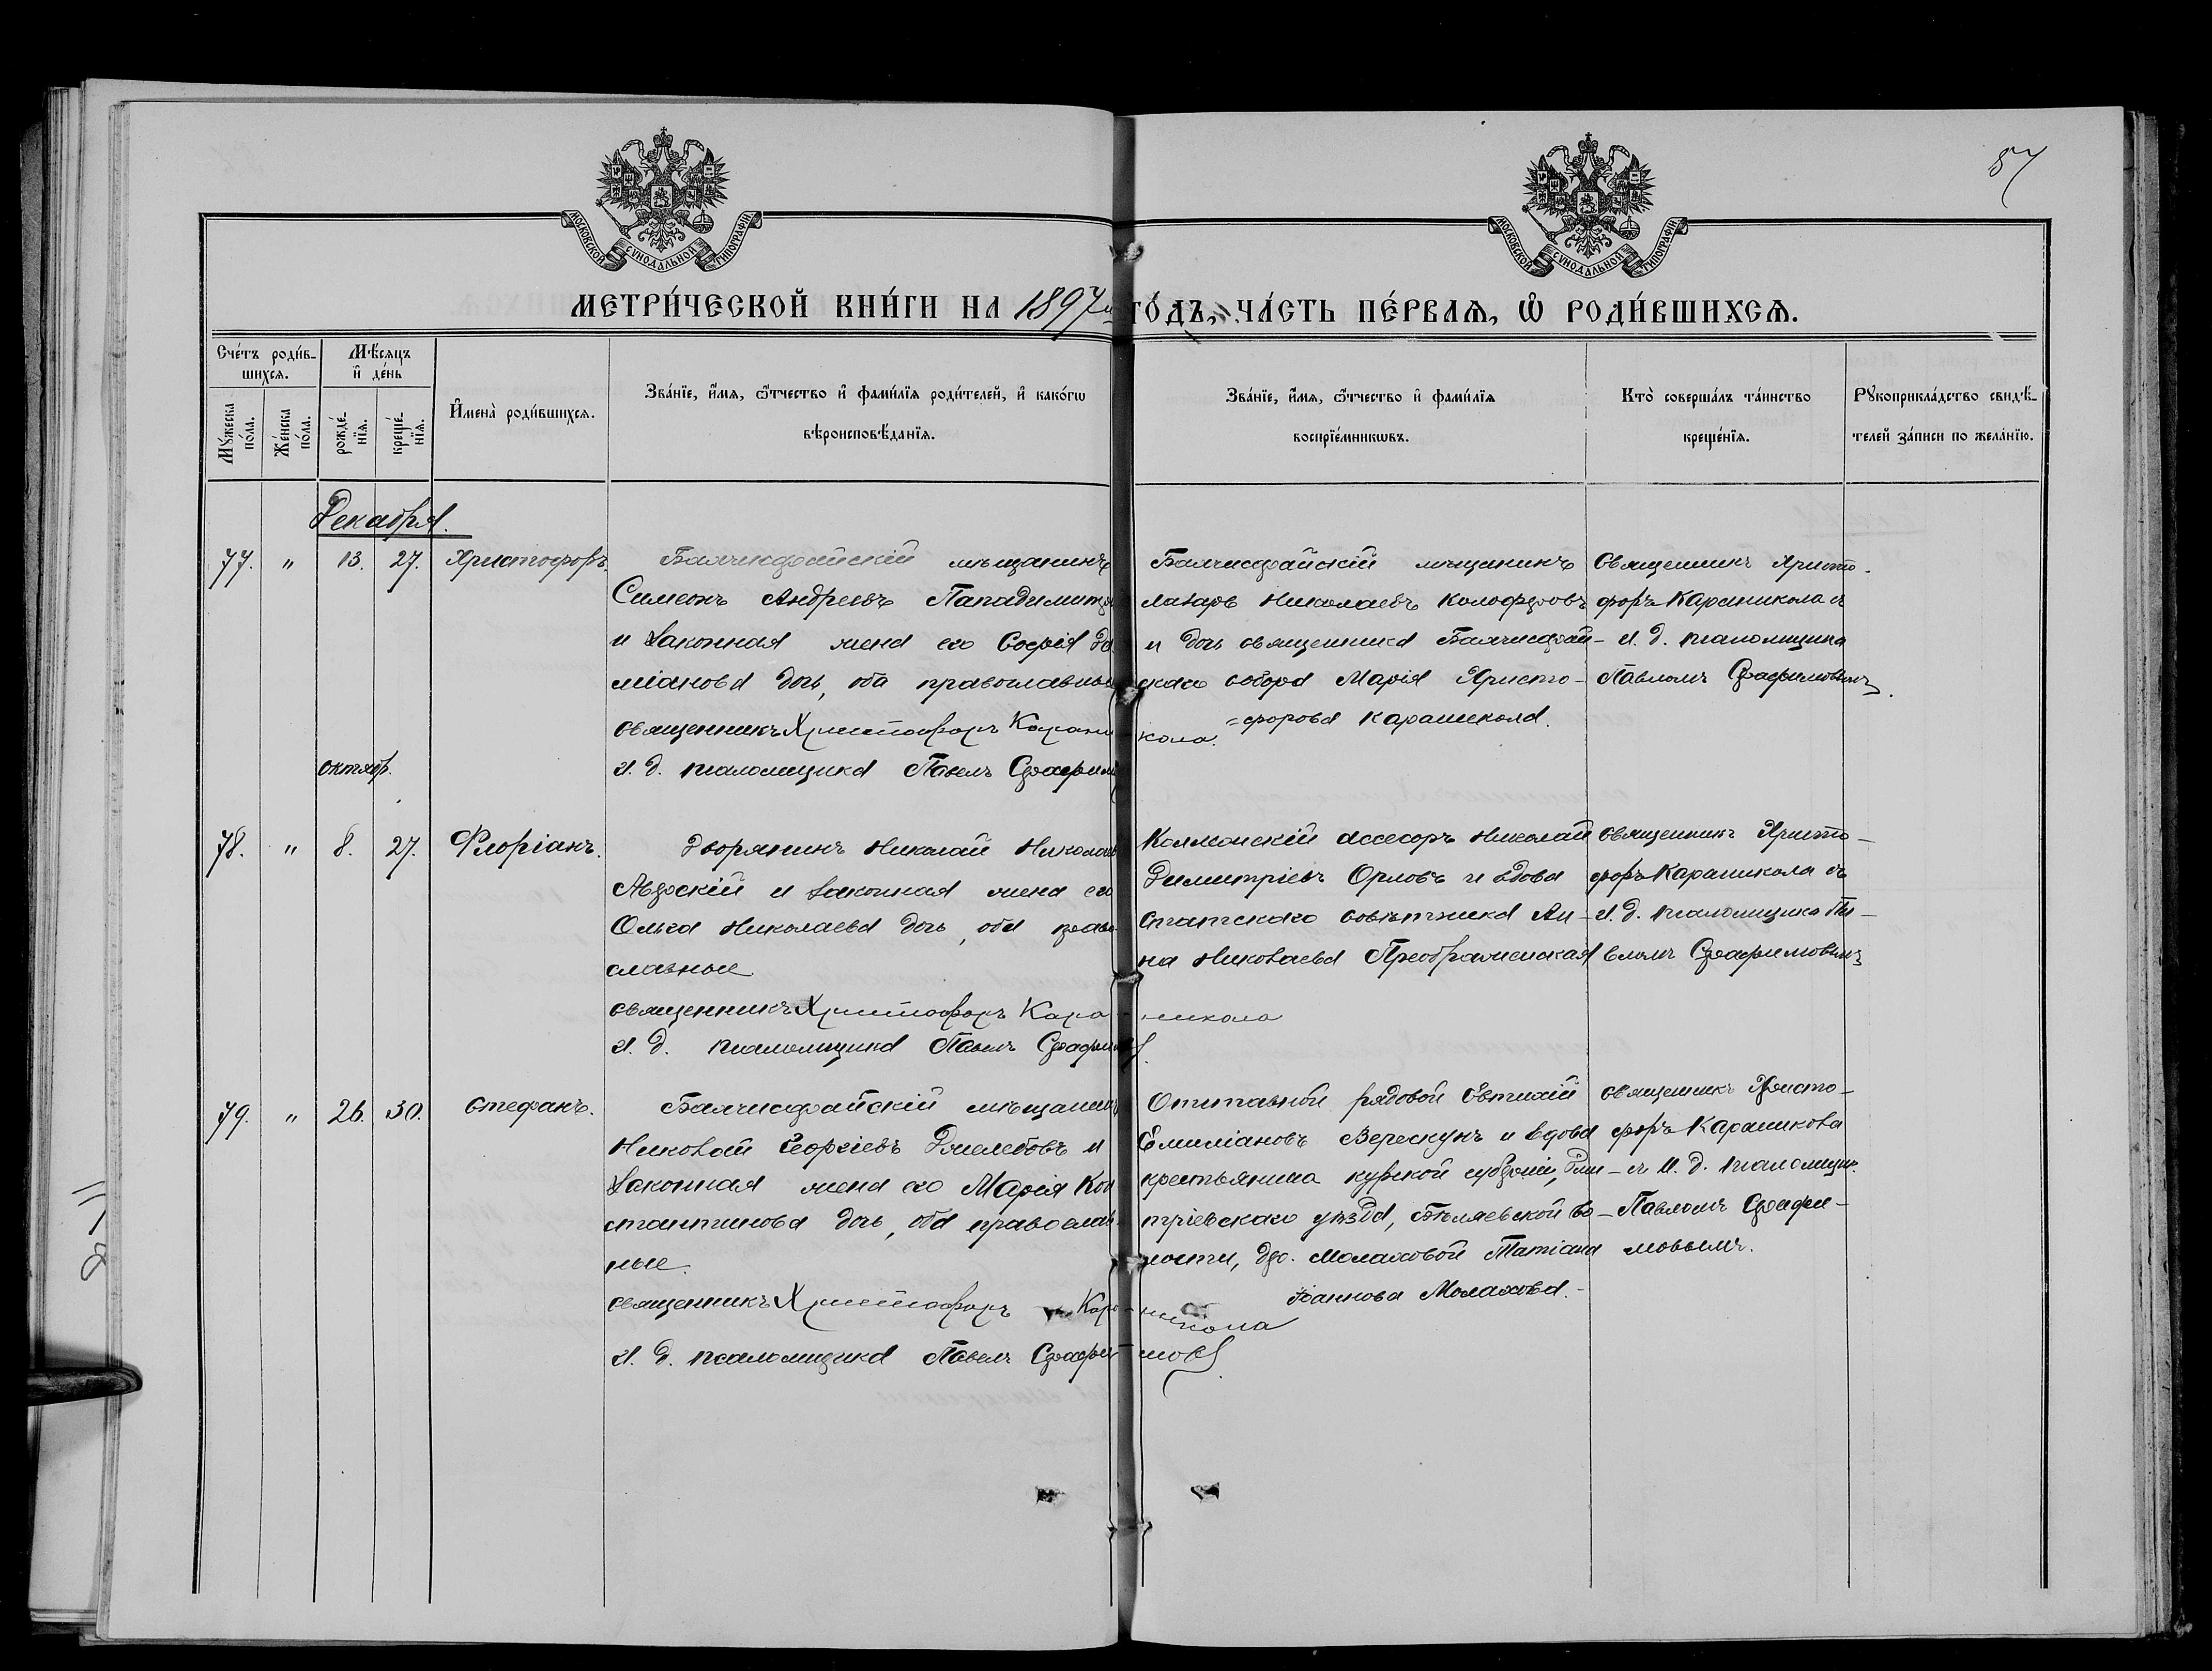 87
МОСКОВСКОЙ СѴНОДАЛЬНОЙ ТИПОГРАФІИ
МОСКОВСКОЙ СѴНОДАЛЬНОЙ ТИПОГРАФІИ
МЕТРИ́ЧЕСКОЙ КНИ́ГИ НА 1897 ГО́ДЪ, ЧА́СТЬ ПЕ́РВАѦ, Ѡ РОДИ́ВШИХСѦ.
Сче́тъ роди́в-
шихсѧ.
Мꙋ́жеска по́ла.
Же́нска по́ла.
Мѣ́сѧцъ и де́нь
рожде́-нїѧ.
креще́-нїѧ.
И҆мена̀ роди́вшихсѧ.
Зва́нїе, и҆́мѧ, ѻ҆́тчество и҆ фами́лїѧ роди́телей, и҆ како́гѡ
вѣроисповѣ́данїѧ.
Зва́нїе, и҆́мѧ, ѻ҆́тчество и҆ фами́лїѧ
воспрїе́мникѡвъ.
Кто̀ соверша́лъ та́инство
креще́нїѧ.
Рꙋкоприкла́дство свидѣ́-
телей за́писи по жела́нїю.
Декабря.
77. " 13. 27. Христофоръ.
Балтисарайскій мѣщанинъ
Симеонъ Андреевъ
и законная жена его Софія Да
міанова дочь, оба православные
священникъ Христофоръ Карани
кола.
И. д. псаломщика Павелъ Серафимо
мѣщанинъ
Лазарь Николаевъ
и дочь священника
скаго собора Марія Христо-
=форова Караникола.
Священникъ Христо-
форъ Караникола съ
и. д. псаломщика
Павломъ Серафимовымъ.
Октябр.
78. " 8. 27. Флоріанъ.
Дворянинъ Николай Николаев
и законная жена его
Ольга Николаева дочь, оба право-
славные
священникъ Христофоръ Кара-
никола
И. д. псаломщика Павелъ Серафимовъ.
Коллежскій ассесоръ Николай
Димитріевъ Орловъ и вдова
статскаго совѣтника Ан-
на Николаева Преображенская
Священникъ Христо-
форъ Караникола съ
И. д. псаломщика Па-
вломъ Серафимовымъ
79. " 26. 30. Стефанъ.
мѣщанинъ
Николай Георгіевъ и
законная жена его Марія Кон
стантинова дочь, оба православ-
ные.
священникъ Христофоръ Кара-
никола
И. д. псаломщика Павелъ Серафи-
мовъ
Отставной рядовой Евтихій
Емиліановъ Верескунъ и вдова
крестьянина курской губерніи, Дми-
тріевскаго уѣзда, Бѣляевской во-
лости, дер. Молаховой Татіана
Іоаннова Молахова.-
священникъ Христо-
форъ Караникола
съ И. д. псаломщик.
Павломъ Серафи-
мовымъ.